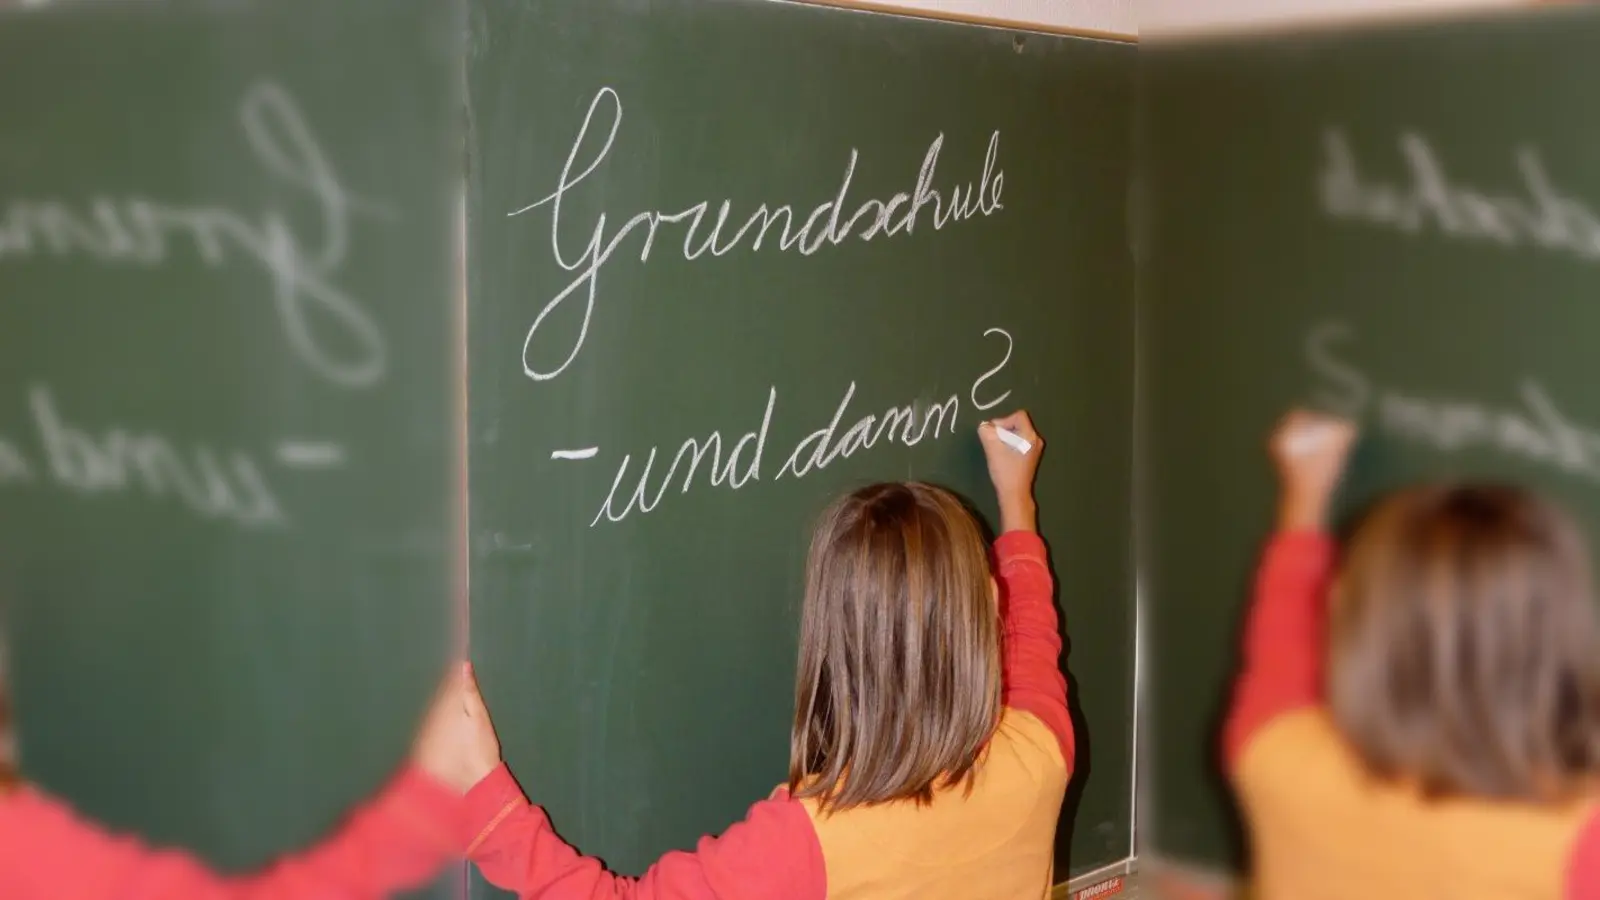 Grundschule
- und dann?